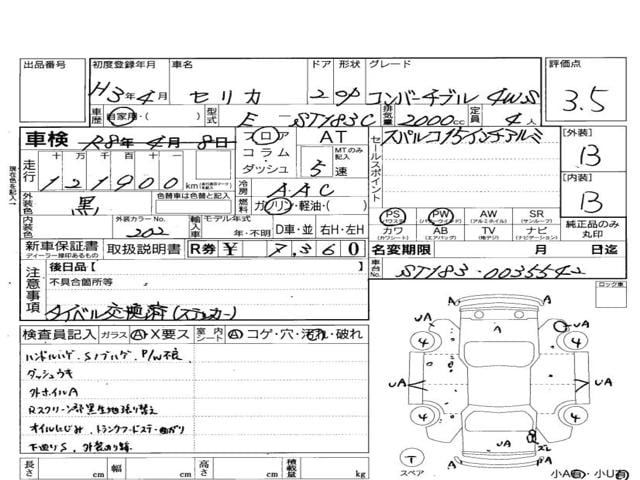 出品番号 初度登録年月 車名 ドア 形状 グレード 評価点
H3年4月 セリカ 2 OP コンバーチブル 4WS 3.5
車歴 自家用・( ) 型式 E-ST183C 排気量 2000cc 定員 4人
車検 R8年4月8日 フロア コラム ダッシュ AT MTのみ記入 5速
セールスポイント スパルコ15インチアルミ
[外装] B
[内装] B
走行 十万 万 千 百 十 一
121900 km
冷房 AAC
外装色 黒 色替車は元色と記入
燃料 ガソリン・軽油・( )
内装色 外装カラーNo. 202 輸入車 モデル年式 年・不明 D車・並 右H・左H
PS (パワステ) PW (パワーウインド) AW (アルミホイル) SR (サンルーフ)
カワ (カワシート) AB (エアバッグ) TV (純ナビ) ナビ (ナビゲーション)
純正品のみ丸印
新車保証書 ディーラー捺印あるもの 取扱説明書 R券 ¥ 7,360
名変期限 月 日迄
車台No. ST183-0035542
注意事項 後日品[ ]
不具合箇所等
タイベル交換済(ステッカー)
ロック車
検査員記入 ガラス A・X要ス 室内シート A コゲ・穴・汚れ・破れ
ハンドルハゲ、Sノブハゲ、P/W不良
ダッシュウキ
外ホイルA
Rスクリーン
オイルにじみ、トランクフードステー曲がり
下回りS、
長さ cm 幅 cm 高さ cm 積載量 kg
T スペア
小A有・小U有